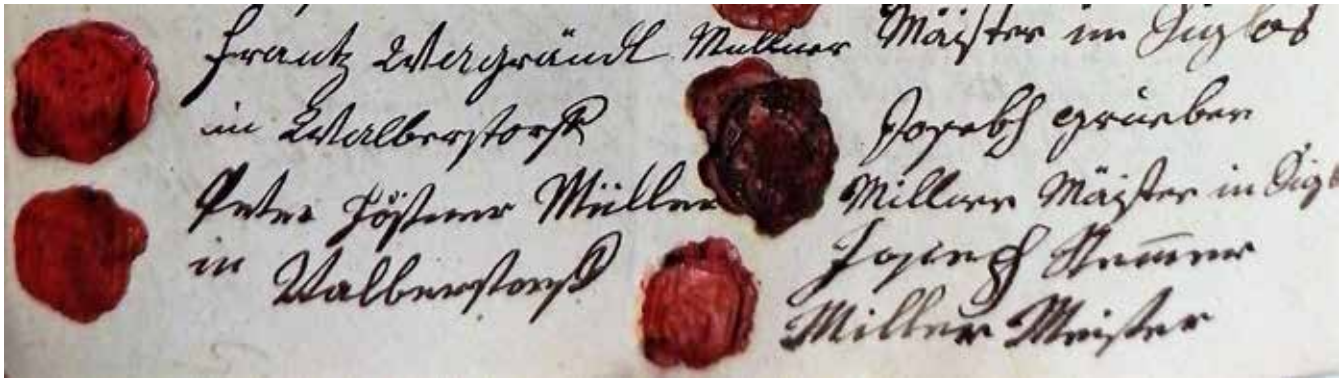 Frantz Wagrändl Mullner
in Walberstorff
Peter Höstner Müller
in Walberstorff
Mäister in Siglos
Joseph grueber
Millner Mäister in Sigl
Joseph Stemmer
Miller Meister